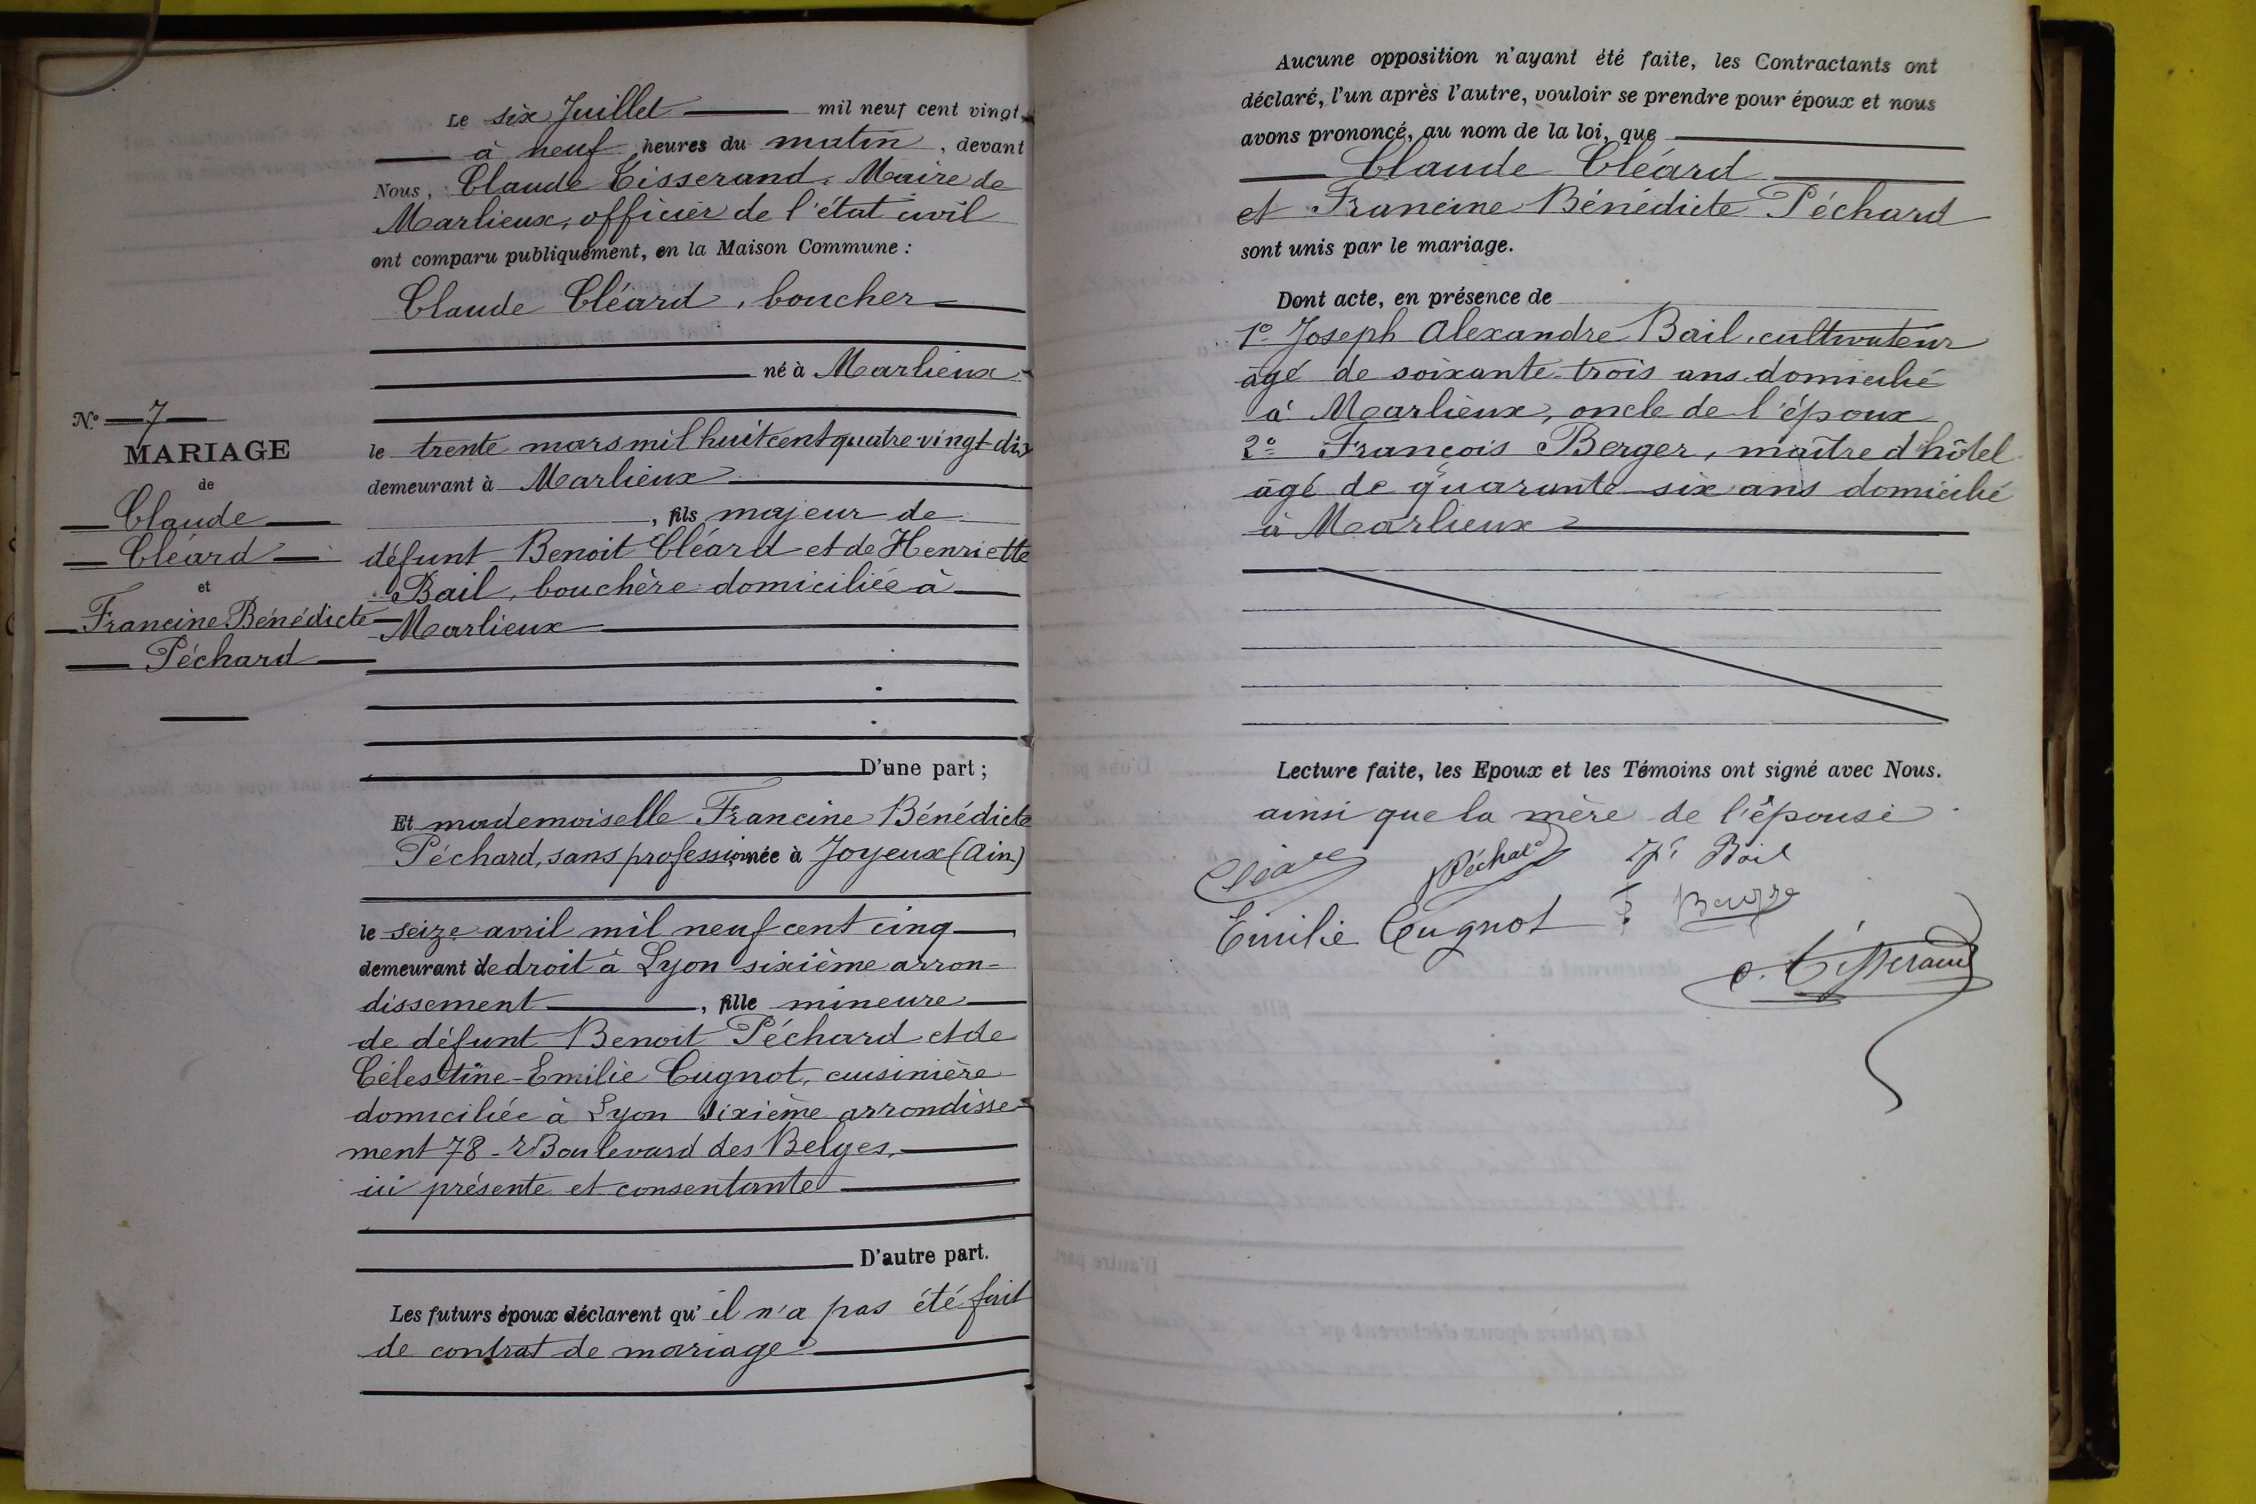 Le six Juillet mil neuf cent vingt
à neuf heures du matin, devant
Nous, Claude Tisserand, Maire de
Marlieux, officier de l'état civil
ont comparu publiquement, en la Maison Commune :
Claude Cléard, boucher
né à Marlieux
le trente mars mil huit cent quatre-vingt-dix
demeurant à Marlieux
, fils majeur de
défunt Benoit Cléard et de Henriette
Bail, bouchère domiciliée à
Marlieux
D'une part ;
Et mademoiselle Francine Bénédicte
Péchard, sans profession, née à Joyeux (Ain)
le seize avril mil neuf cent cinq
demeurant de droit à Lyon sixième arron-
dissement, fille mineure
de défunt Benoit Péchard et de
Célestine-Emilie Cugnot, cuisinière
domiciliée à Lyon sixième arrondisse-
ment 78 - Boulevard des Belges,
ici présente et consentante
D'autre part.
Les futurs époux déclarent qu'il n'a pas été fait
de contrat de mariage
N° 7
MARIAGE
de
Claude
Cléard
et
Francine Bénédicte
Péchard
Aucune opposition n'ayant été faite, les Contractants ont
déclaré, l'un après l'autre, vouloir se prendre pour époux et nous
avons prononcé, au nom de la loi, que
Claude Cléard
et Francine Bénédicte Péchard
sont unis par le mariage.
Dont acte, en présence de
1° Joseph Alexandre Bail, cultivateur
âgé de soixante-trois ans domicilié
à Marlieux, oncle de l'époux
2° François Berger, maître d'hôtel
âgé de quarante-six ans domicilié
à Marlieux
Lecture faite, les Epoux et les Témoins ont signé avec Nous.
ainsi que la mère de l'épouse
Cléard Péchard Bail
Emilie Cugnot F. Berger
C. Tisserand